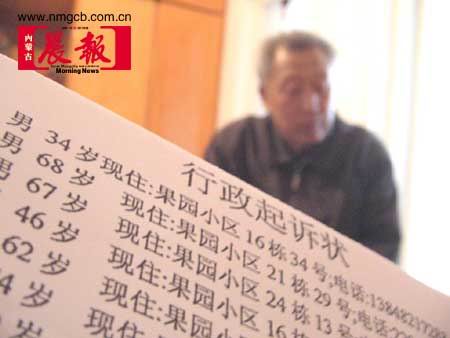 www.nmgcb.com.cn
内蒙古
晨報
Morning News
行政起诉状
男 34 岁 现住:果园小区 16 栋 34 号;电话:13848
男 68 岁 现住:果园小区 21 栋 29 号;电话
男 67 岁 现住:果园小区 24 栋 13 号
46 岁 现住:果园小区 16
62 岁 现住:果园
岁 现住